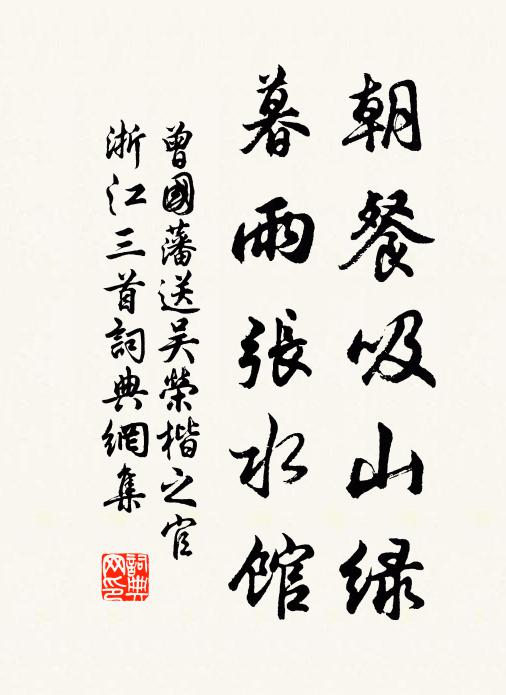 朝餐吸山绿
暮雨張水館
曾國藩送吴榮楷之官
浙江三首詞典網集
詞典
网印